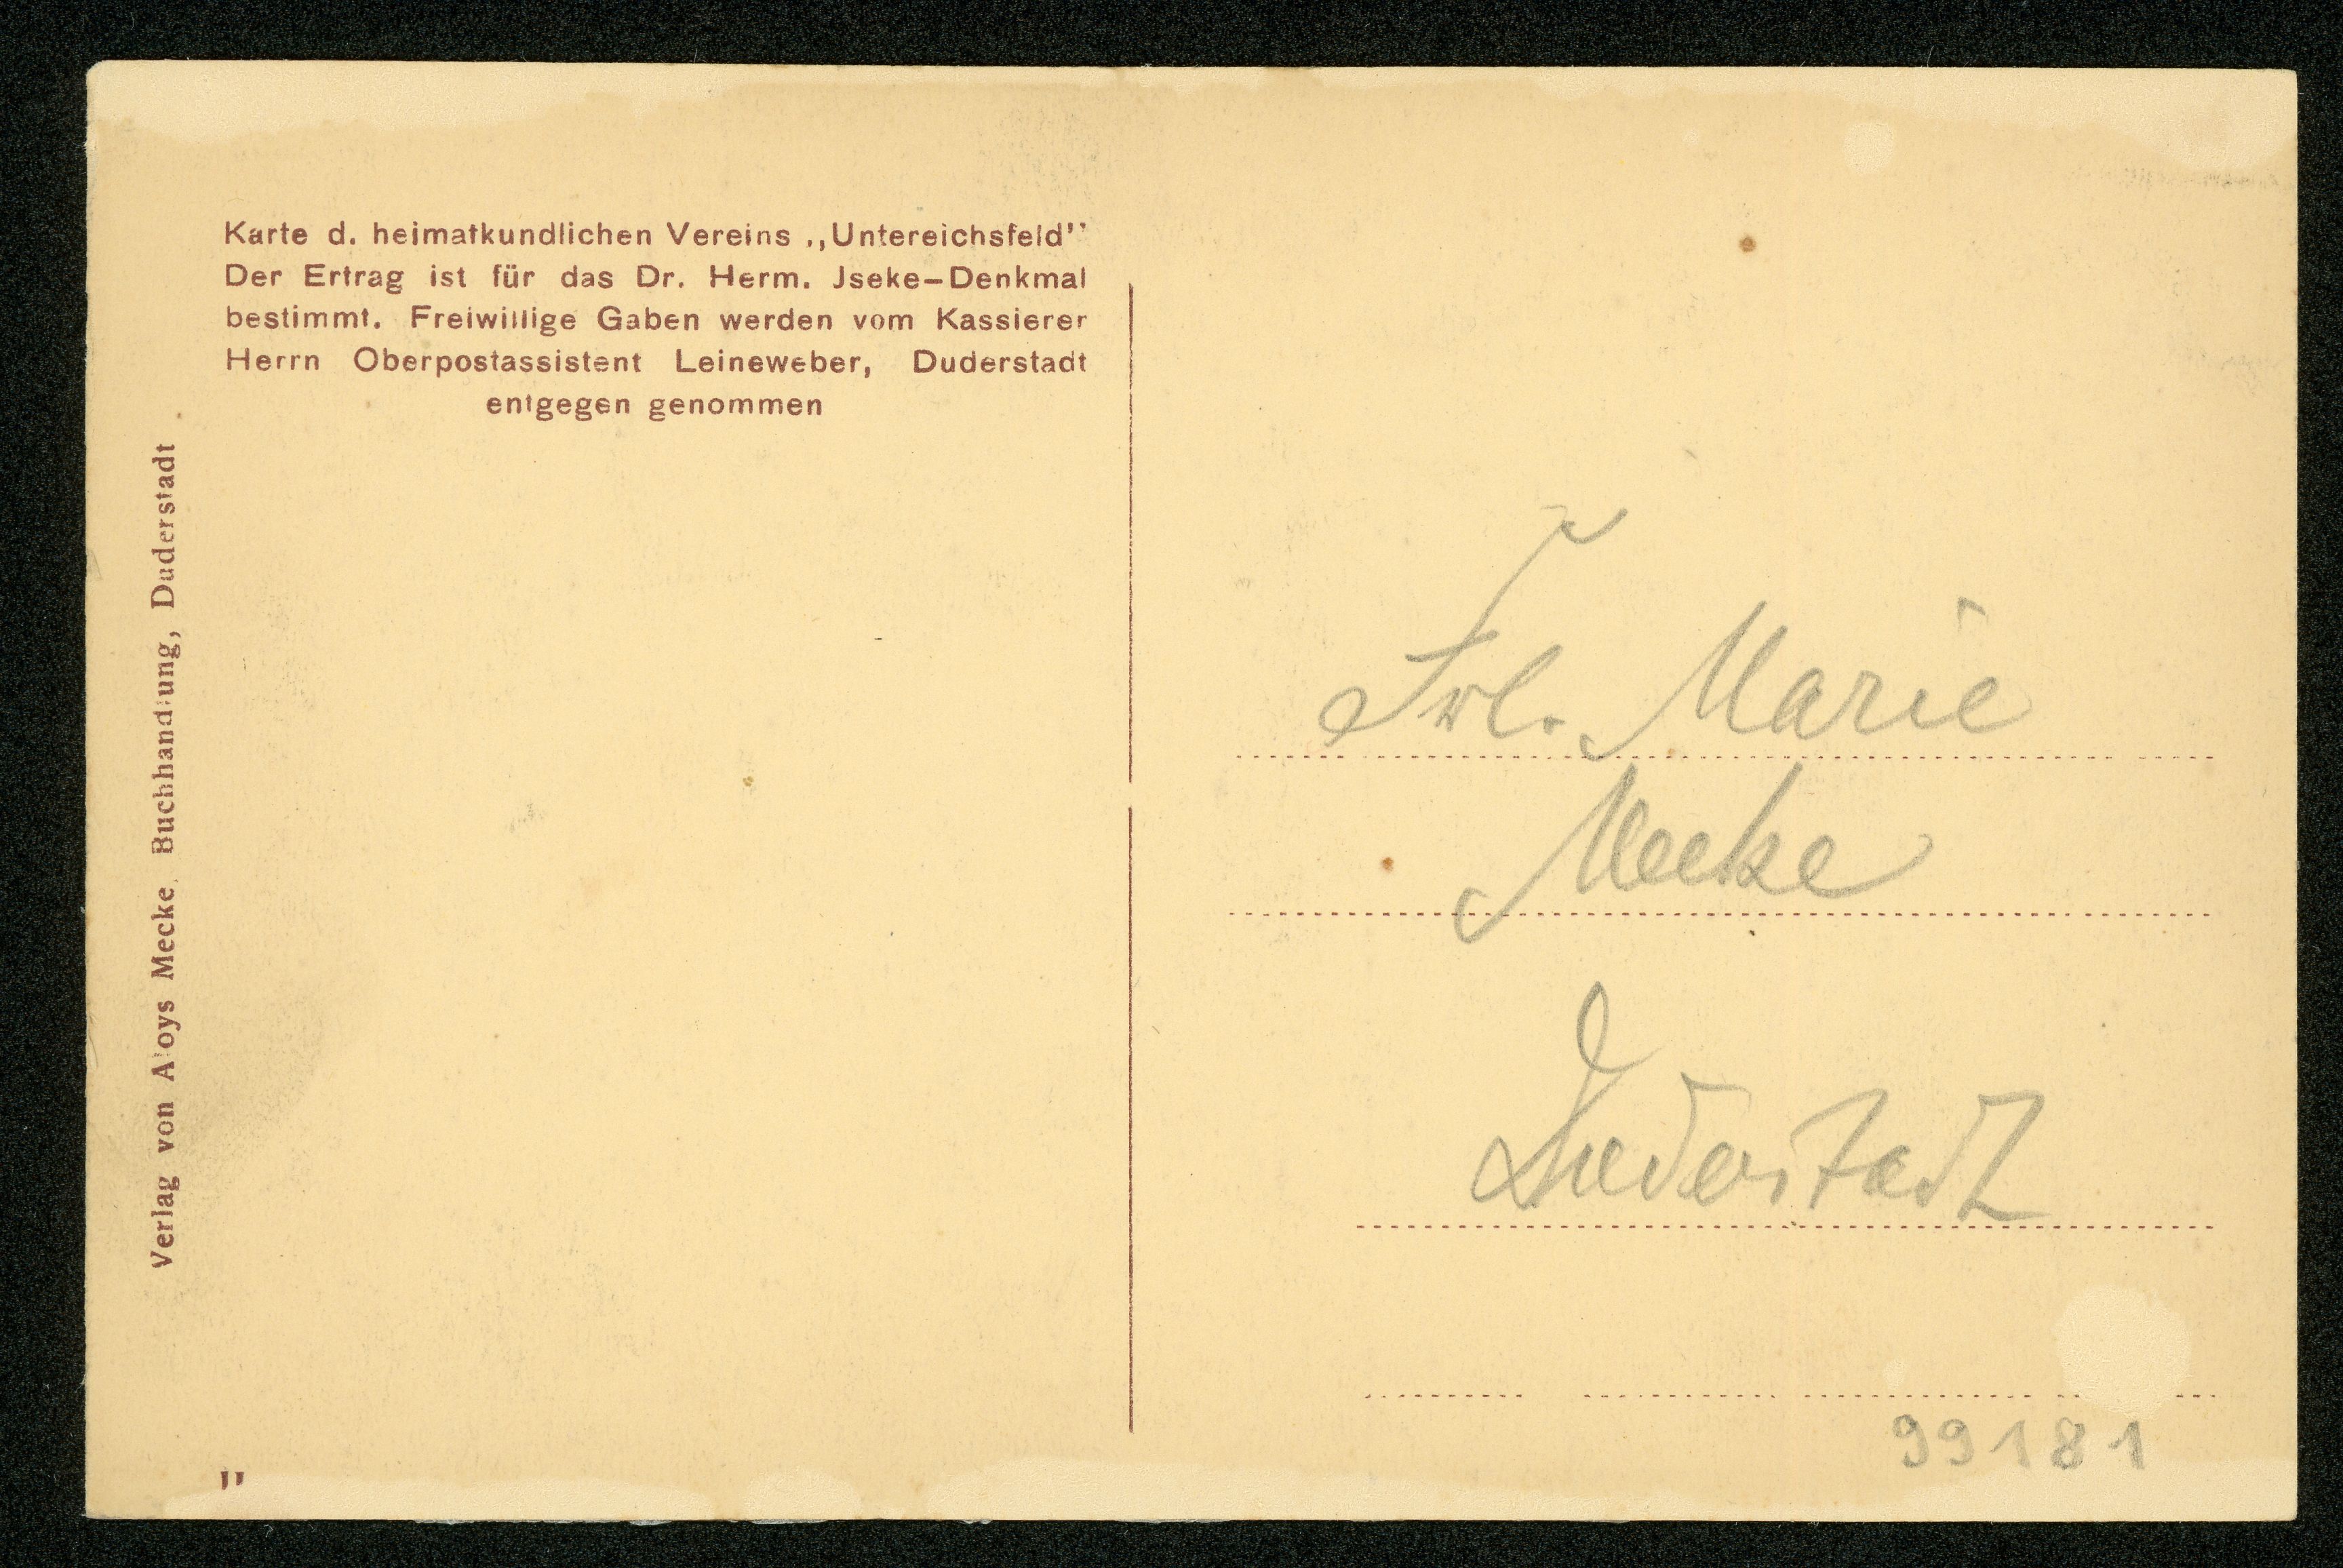 Karte d. heimatkundlichen Vereins „Untereichsfeld"
Der Ertrag ist für das Dr. Herm. Jseke-Denkmal
bestimmt. Freiwillige Gaben werden vom Kassierer
Herrn Oberpostassistent Leineweber, Duderstadt
entgegen genommen
Verlag von Aloys Mecke, Buchhandlung, Duderstadt
Frl. Marie
Mecke
Duderstadt
99181